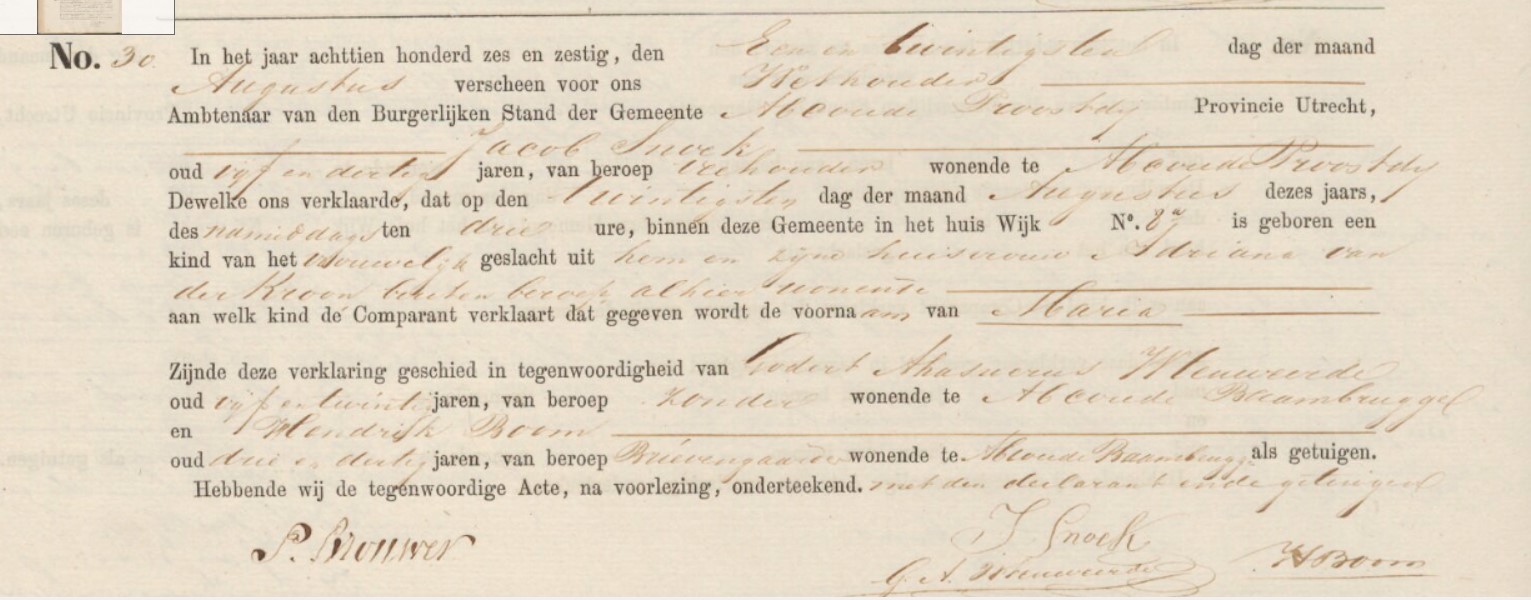 No. 30 In het jaar achttien honderd zes en zestig, den Een en twintigsten dag der maand
Augustus verscheen voor ons Wethouder
Ambtenaar van den Burgerlijken Stand der Gemeente Abcoude Proostdy Provincie Utrecht,
Jacob Snoek
oud vijf en dertig jaren, van beroep veehouder wonende te Abcoude Proostdy
Dewelke ons verklaarde, dat op den twintigsten dag der maand Augustus dezes jaars,
des namiddags ten drie ure, binnen deze Gemeente in het huis Wijk No. 87a is geboren een
kind van het vrouwelijk geslacht uit hem en zijne huisvrouw Adriana van
der Kroon buiten beroep alhier wonende
aan welk kind de Comparant verklaart dat gegeven wordt de voornaam van Maria
Zijnde deze verklaring geschied in tegenwoordigheid van Godert Ahasuerus
oud vijf en twintig jaren, van beroep zonder wonende te Abcoude Baambrugge
en Hendrik Boom
oud drie en dertig jaren, van beroep Brievengaarder wonende te Abcoude Baambrugge als getuigen.
Hebbende wij de tegenwoordige Acte, na voorlezing, onderteekend. met den declarant en de getuigen
P. Brouwer
J. Snoek
G. A.
H Boom